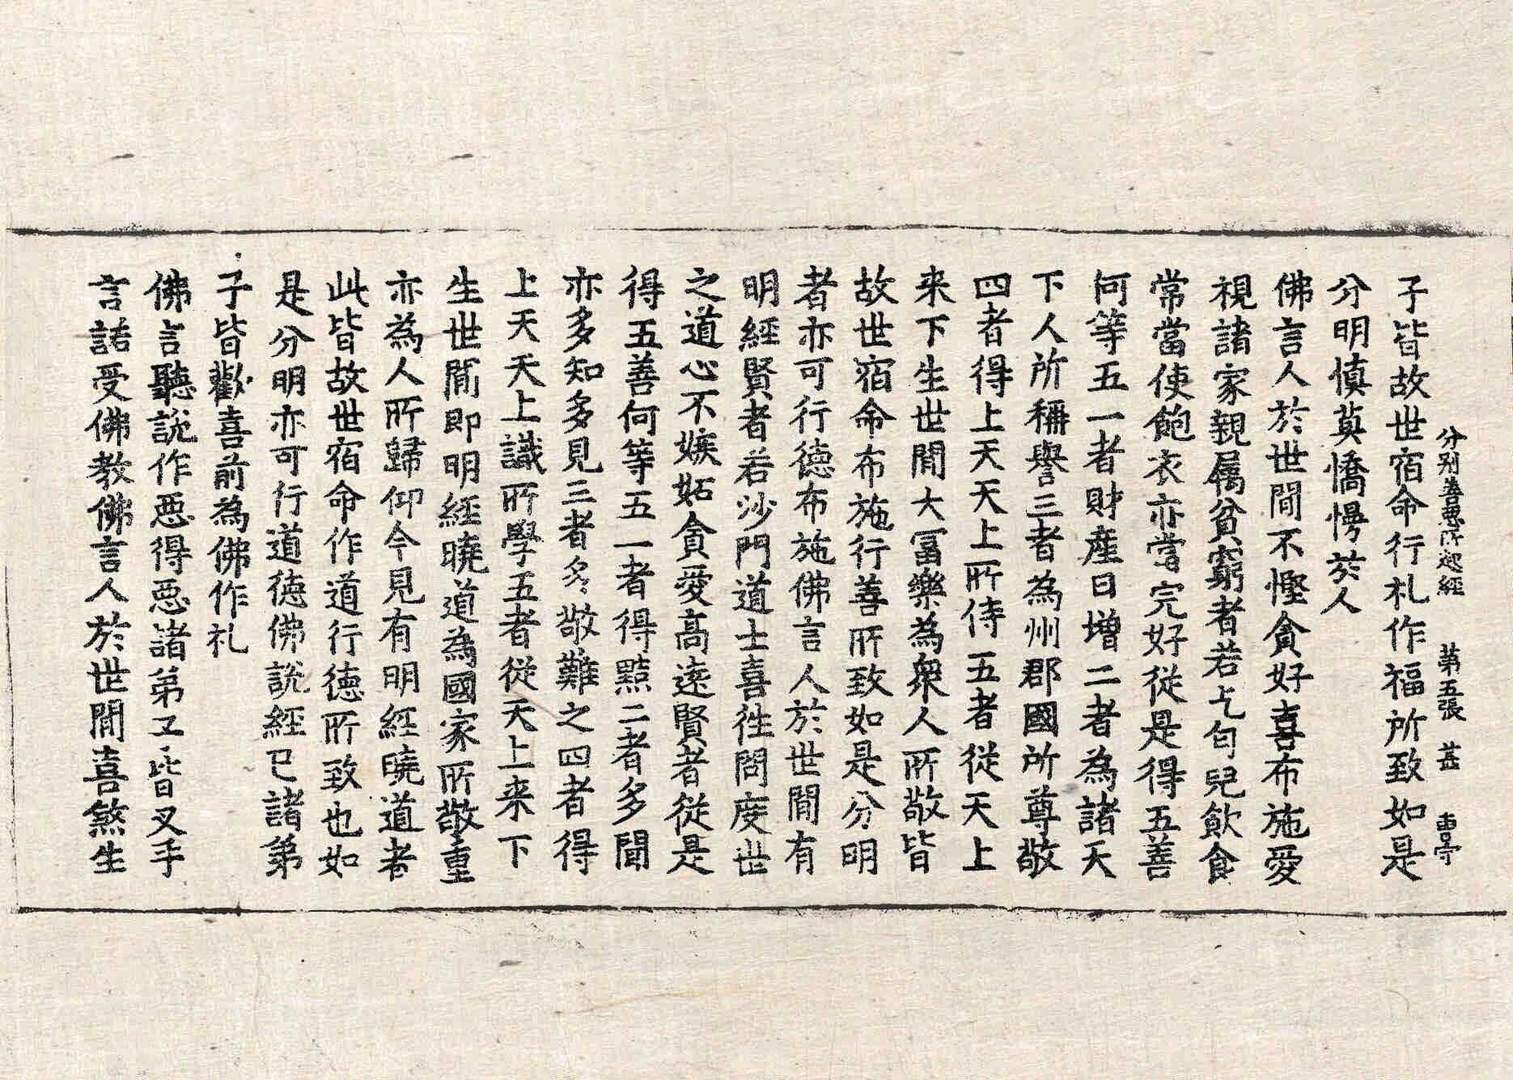 分别善惡所起經 第五張 甚
子皆故世宿命行礼作福所致如是
分明慎莫憍慢於人
佛言人於世間不慳貪好喜布施愛
視諸家親属貧窮者若乞匂兒飲食
常當使飽衣亦當完好從是得五善
何等五一者財產日增二者為諸天
下人所稱譽三者為州郡國所尊敬
四者得上天天上所侍五者從天上
来下生世間大冨樂為衆人所敬皆
故世宿命布施行善所致如是分明
者亦可行德布施佛言人於世間有
明經賢者若沙門道士喜徃問度世
之道心不嫉妬貪愛高遠賢者從是
得五善何等五一者得黠二者多聞
亦多知多見三者多敬難之四者得
上天天上識所學五者從天上来下
生世間即明經曉道為國家所敬重
亦為人所歸仰今見有明經曉道者
此皆故世宿命作道行德所致也如
是分明亦可行道德佛說經已諸弟
子皆歡喜前為佛作礼
佛言聽說作惡得惡諸弟子皆叉手
言諾受佛教佛言人於世間喜煞生